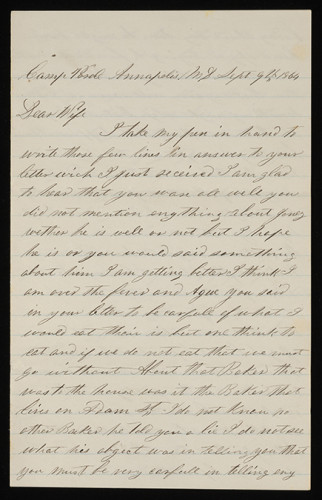 Camp Annapolis Md Sept 9th 1864
Dear Wife
I take my pen in hand to
write those few lines in answer to your
letter wich I just received I am glad
to hear that you ware all well you
did not mention enything about
wether he is well or not but I hope
he is or you would said something
about him I am getting better I think I
am over the fever and Ague you said
in your letter to be carfull of what I
would eat their is but one think to
eat and if we do not eat that we must
go without About that Baker that
was to the house was it the Baker that
lives on St I do not know no
other Baker he told you a lie I do not see
what his object was in telling you that
you must be very carfull in telling eny